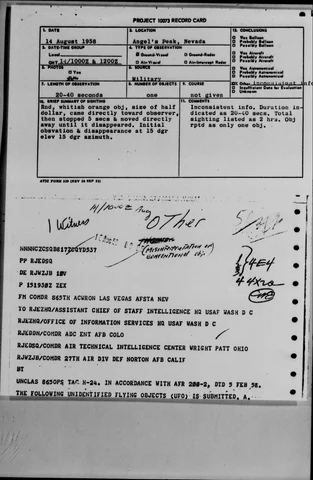 PROJECT 10073 RECORD CARD
1. DATE
14 August 1958
2. LOCATION
Angel's Peak, Nevada
12. CONCLUSIONS
Was Balloon
Probably Balloon
Possibly Balloon
Was Aircraft
Probably Aircraft
Possibly Aircraft
Was Astronomical
Probably Astronomical
Possibly Astronomical
Other Inconsistent info
Insufficient Data for Evaluation
Unknown
3. DATE-TIME GROUP
Local
GMT 14/1000Z & 1200Z
4. TYPE OF OBSERVATION
Ground-Visual
Ground-Radar
Air-Visual
Air-Intercept Radar
5. PHOTOS
Yes
No
6. SOURCE
Military
7. LENGTH OF OBSERVATION
20-40 seconds
8. NUMBER OF OBJECTS
one
9. COURSE
not given
10. BRIEF SUMMARY OF SIGHTING
Rnd, whitish orange obj, size of half
dollar, came directly toward observer,
then stopped 2 secs & moved directly
away until it disappeared. Initial
obsvation & disappearance at 15 dgr
elev 15 dgr azimuth.
11. COMMENTS
Inconsistent info. Duration in-
dicated as 20-40 secs. Total
sighting listed as 2 hrs. Obj
rptd as only one obj.
ATIC FORM 329 (REV 26 SEP 52)
1 Witness
Aug
OTHER
(Misinterpretation of
conventional obj.
4E4
PP RJEDSQ
DE RJWZJB 10V
P 151930Z ZEX
FM COMDR 865TH ACWRON LAS VEGAS AFSTA NEV
TO RJEZHQ/ASSISTANT CHIEF OF STAFF INTELLIGENCE HQ USAF WASH D C
RJEZHQ/OFFICE OF INFORMATION SERVICES HQ USAF WASH D C
RJEDDN/COMDR ADC ENT AFB COLO
RJEDSQ/COMDR AIR TECHNICAL INTELLIGENCE CENTER WRIGHT PATT OHIO
RJWZJB/COMDR 27TH AIR DIV DEF NORTON AFB CALIF
BT
UNCLAS 865OPS TAC H-24. IN ACCORDANCE WITH AFR 200-2, DTD 5 FEB 58.
THE FOLLOWING UNIDENTIFIED FLYING OBJECTS (UFO) IS SUBMITTED, A.